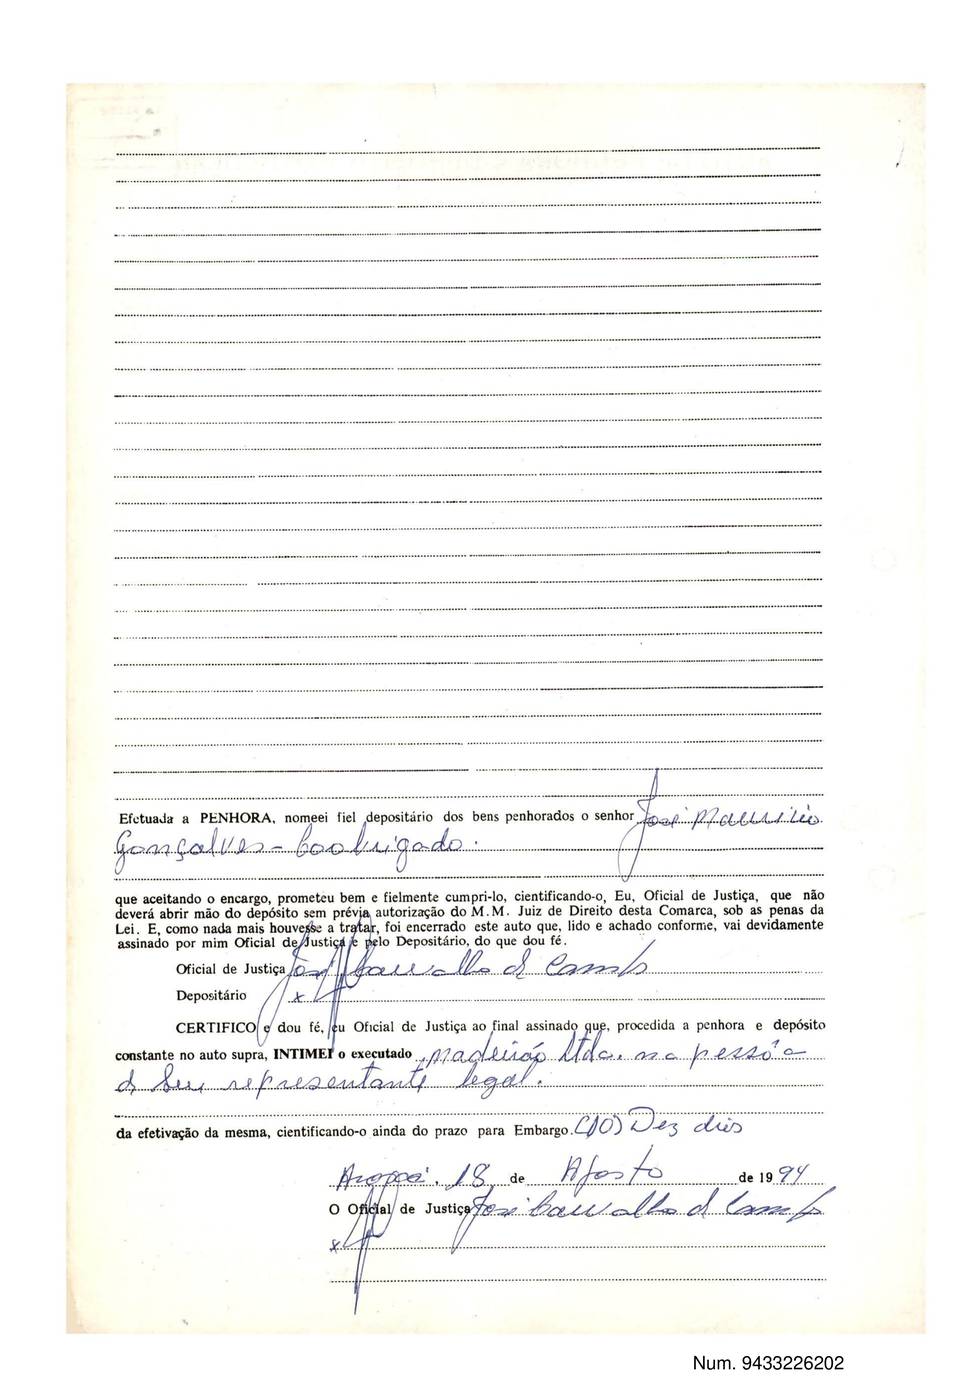 Efetuada a PENHORA, nomeei fiel depositário dos bens penhorados o senhor José Maurilio
Gonçalves - Coobrigado.
que aceitando o encargo, prometeu bem e fielmente cumpri-lo, cientificando-o, Eu, Oficial de Justiça, que não
deverá abrir mão do depósito sem prévia autorização do M.M. Juiz de Direito desta Comarca, sob as penas da
Lei. E, como nada mais houvesse a tratar, foi encerrado este auto que, lido e achado conforme, vai devidamente
assinado por mim Oficial de Justiça e pelo Depositário, do que dou fé.
Oficial de Justiça José Carvalho d Campos
Depositário x
CERTIFICO e dou fé, eu Oficial de Justiça ao final assinado que, procedida a penhora e depósito
constante no auto supra, INTIMEI o executado, Ltda. na pessôa
d seu representante legal.
da efetivação da mesma, cientificando-o ainda do prazo para Embargo. (10) Dez dias
18, de Agosto de 1994
O Oficial de Justiça José Carvalho d Campos
x
Num. 9433226202